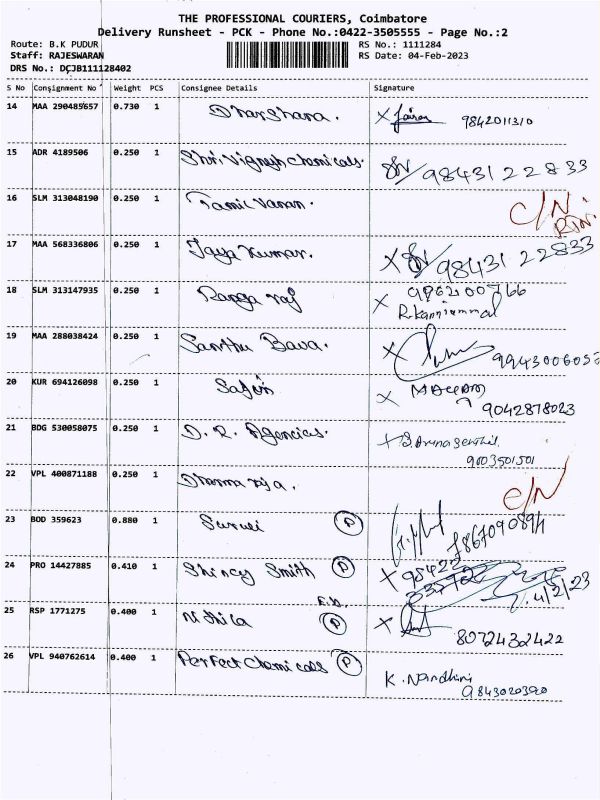 THE PROFESSIONAL COURIERS, Coimbatore
Delivery Runsheet - PCK - Phone No.:0422-3505555 - Page No.:2
Route: B.K PUDUR RS No.: 1111284
Staff: RAJESWARAN RS Date: 04-Feb-2023
DRS No.: DCJB111128402
S No Consignment No Weight PCS Consignee Details Signature
14 MAA 290485657 0.730 1 Dharshana. X 9842011310
15 ADR 4189506 0.250 1 Shri Vignesh Chemicals. 98431 22833
16 SLM 313048190 0.250 1 Tamil Vanan. C/N.
RTN.
17 MAA 568336806 0.250 1 Jaya Kumar. X 98431 22833
18 SLM 313147935 0.250 1 Ranga raj X 9862100766
R.Kanniammal
19 MAA 288038424 0.250 1 Santhu Bava. X 994300605
20 KUR 694126098 0.250 1 Sajin X
9042878023
21 BDG 530058075 0.250 1 D. R. Agencies. X
9003501501
22 VPL 400871188 0.250 1 Dharma raja. C/N
23 BOD 359623 0.880 1 Suruli P
24 PRO 14427885 0.410 1 Shincy Smith P X 98422
4/2/23
25 RSP 1771275 0.400 1 Nithila P X
8072432422
26 VPL 940762614 0.400 1 Perfect Chemicals P K. Nandhini
9843020390